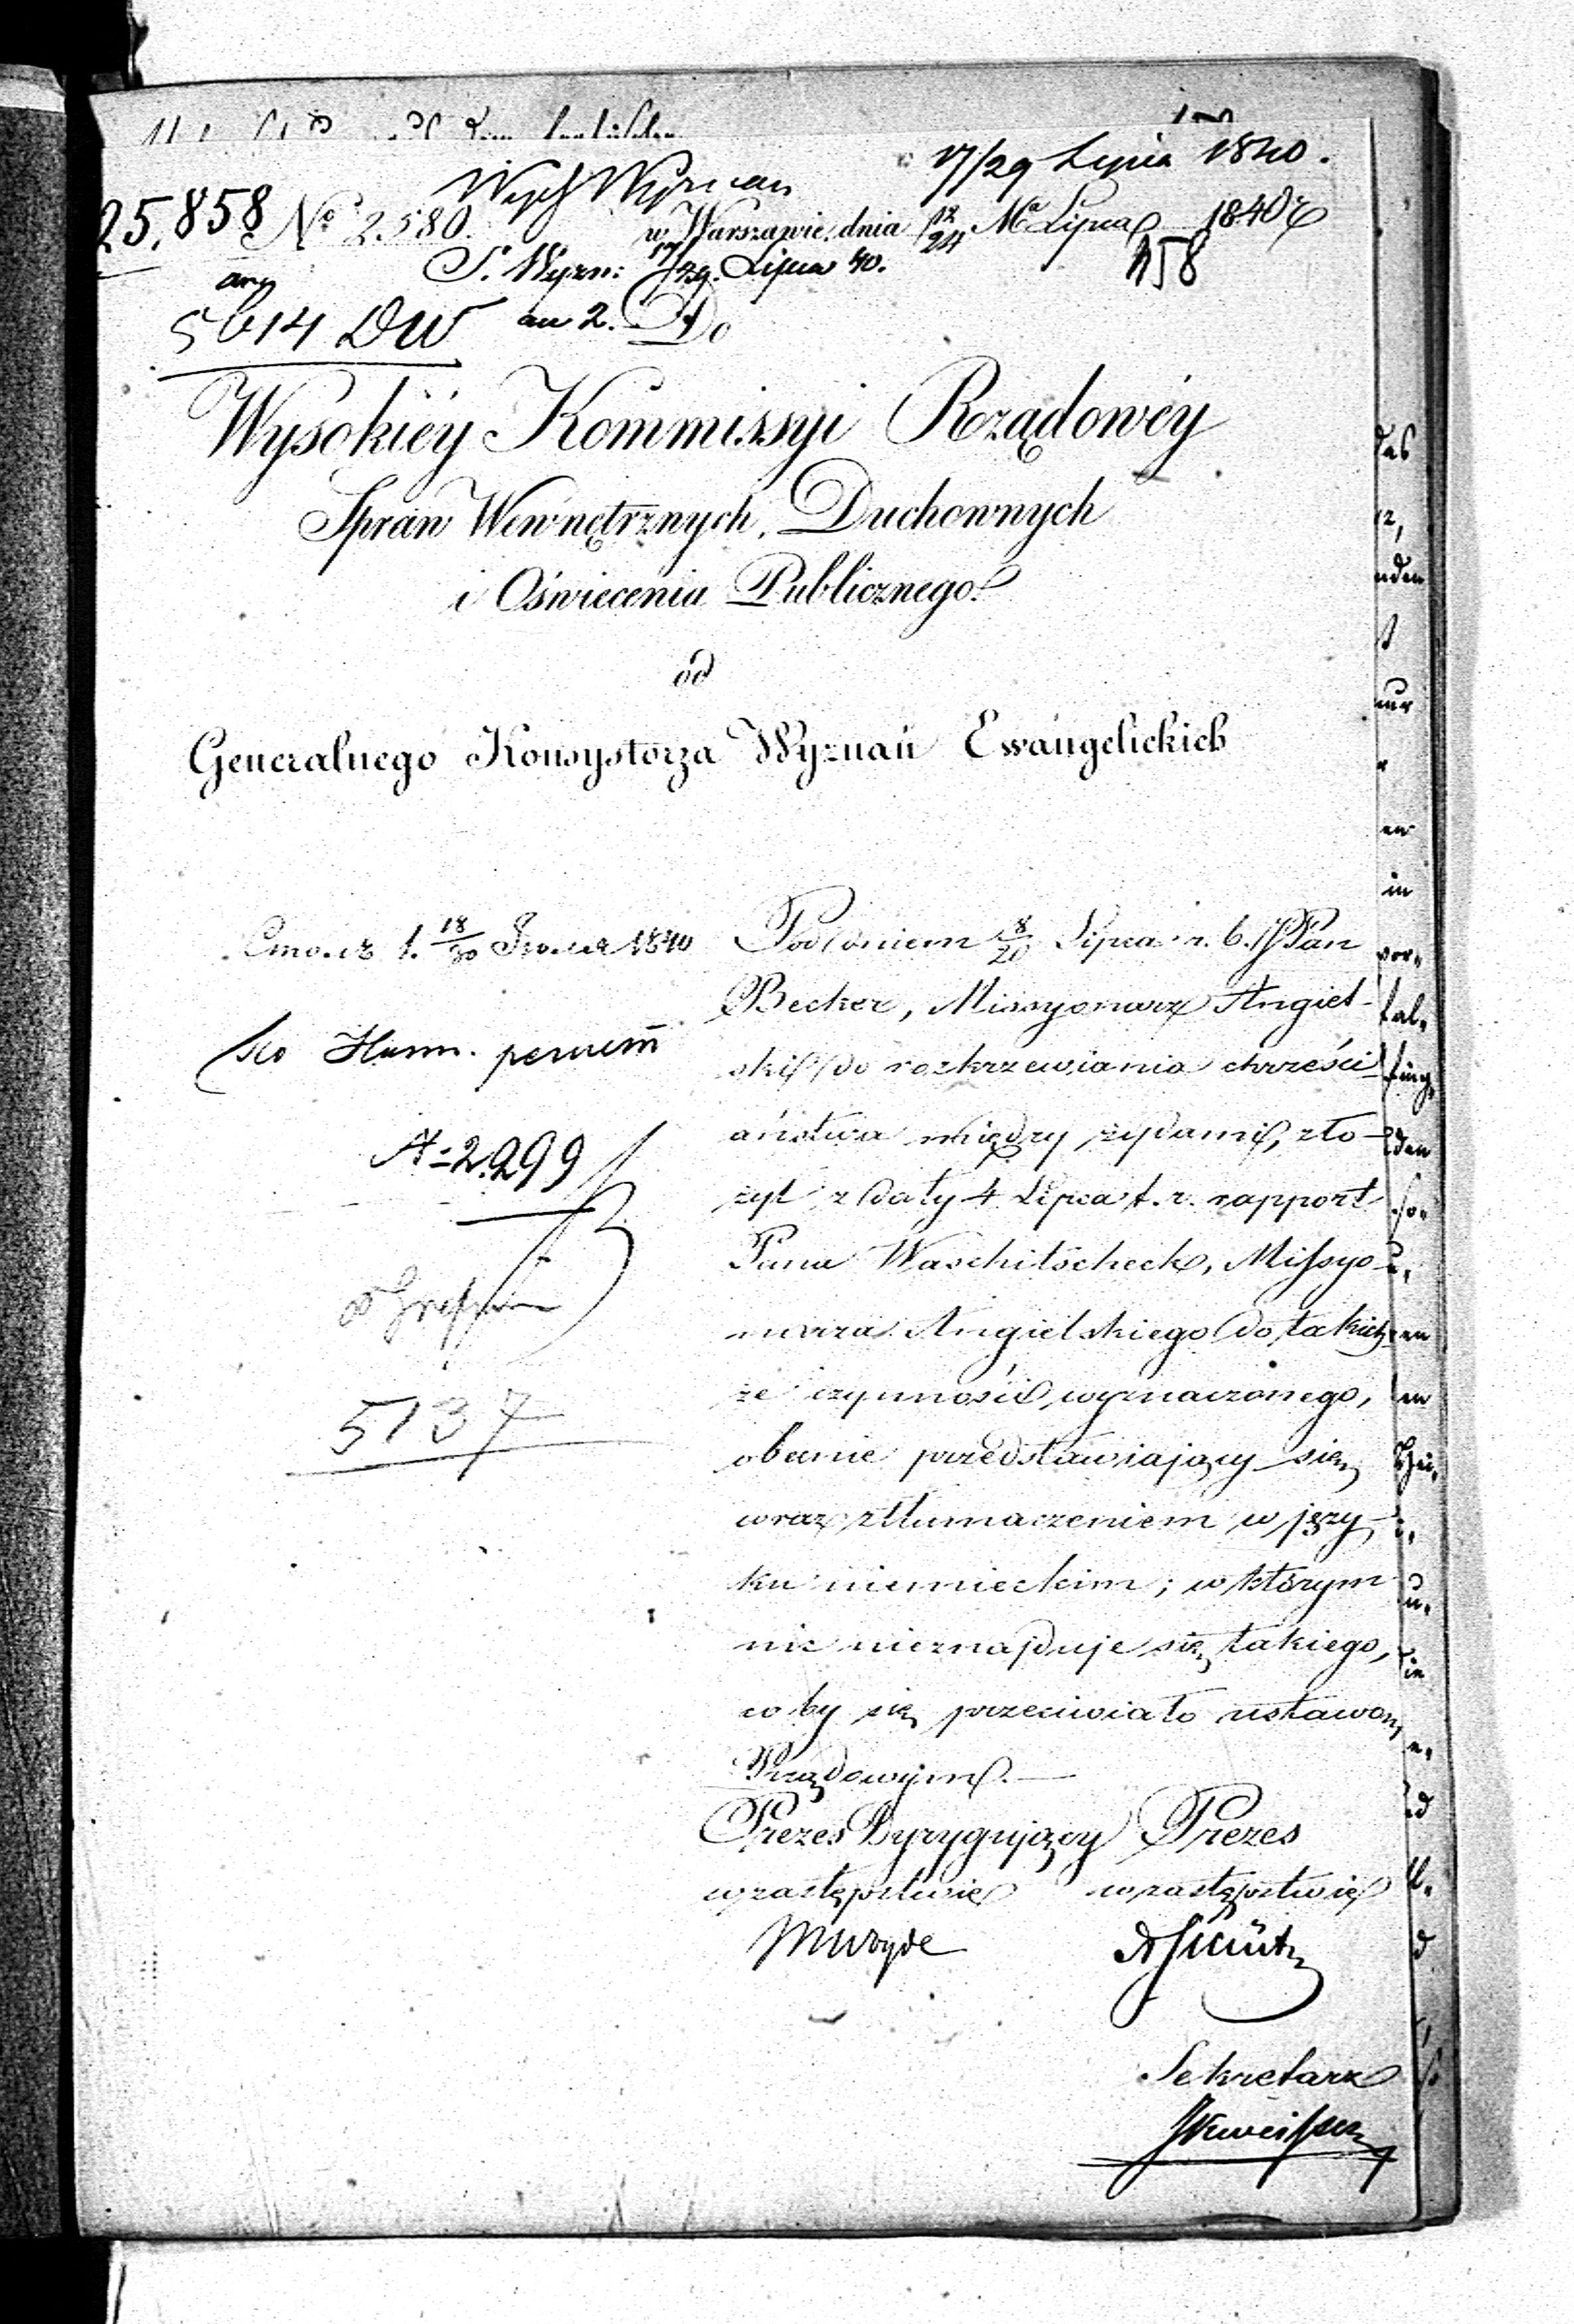 17/29 Lipca 1840.
25,858 No 2580. w Warszawie dnia 12/24 Ma Lipca 1840 r
S. Wyzn: 17/29 Lipca 40. 158
5614 DW an 2. Do
Wysokiéy Kommissyi Rządowéy
Spraw Wewnętrznych, Duchownych
i Oświecenia Publicznego.
od
Generalnego Konsystorza Wyznań Ewangelickich
18/30 1840
Pod dniem 8/20 Lipca r. b. JPan
Becker, Missyonarz Angiel-
ski do rozkrzewiania chrześci-
aństwa między żydami, zło-
żył z daty 4 Lipca t. r. rapport
Pana Waschitscheck, Missyo-
narza Angielskiego do takich-
że czynności wyznaczonego,
obecnie przedstawiający się
wraz z tłumaczeniem w języ-
ku niemieckim; w którym
nic nieznajduje się takiego,
co by się przeciwiało ustawom
Rządowym.—
A=2299
5137
Prezes Dyrygujący Prezes
w zastępstwie w zastępstwie
Sekretarz